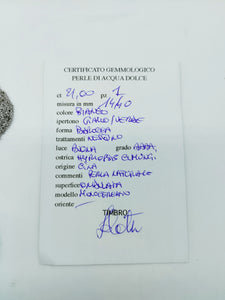 CERTIFICATO GEMMOLOGICO
PERLE DI ACQUA DOLCE
ct 21,00 pz 1
misura in mm 14/10
colore BIANCO
ipertono GIALLO/VERDE
forma BAROCCA
trattamenti NESSUNO
luce BUONA grado
ostrica HYRIOPSIS CUMING.
origine CINA
commenti PERLA NATURALE
superfice ONDULATA
modello
oriente —
TIMBRO